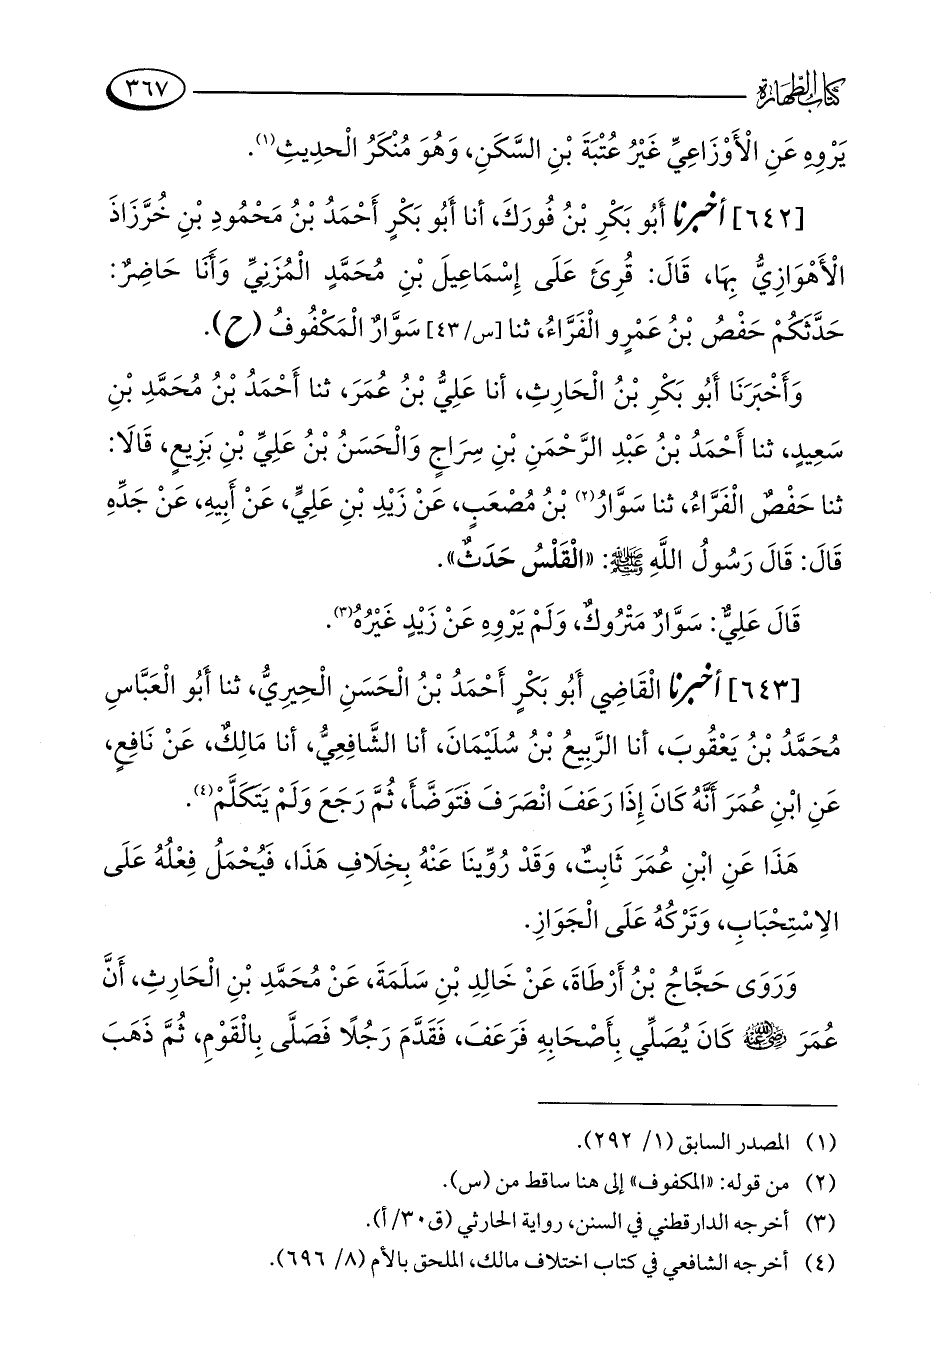 كتاب الطهارة ٣٦٧
يَرْوِهِ عَنِ الْأَوْزَاعِيِّ غَيْرُ عُتْبَةَ بْنِ السَّكَنِ، وَهُوَ مُنْكَرُ الْحَدِيثِ(١).
[٦٤٢] أخبرنا أَبُو بَكْرِ بْنُ فُورَكَ، أنا أَبُو بَكْرٍ أَحْمَدُ بْنُ مَحْمُودِ بْنِ خُرَّزَاذَ
الْأَهْوَازِيُّ بِهَا، قَالَ: قُرِئَ عَلَى إِسْمَاعِيلَ بْنِ مُحَمَّدٍ الْمُزَنِيِّ وَأَنَا حَاضِرٌ:
حَدَّثَكُمْ حَفْصُ بْنُ عَمْرٍو الْفَرَّاءُ، ثنا [س/٤٣] سَوَّارٌ الْمَكْفُوفُ (ح).
وَأَخْبَرَنَا أَبُو بَكْرِ بْنُ الْحَارِثِ، أنا عَلِيُّ بْنُ عُمَرَ، ثنا أَحْمَدُ بْنُ مُحَمَّدِ بْنِ
سَعِيدٍ، ثنا أَحْمَدُ بْنُ عَبْدِ الرَّحْمَنِ بْنِ سِرَاجٍ وَالْحَسَنُ بْنُ عَلِيِّ بْنِ بَزِيعٍ، قَالَا:
ثنا حَفْصٌ الْفَرَّاءُ، ثنا سَوَّارُ(٢) بْنُ مُصْعَبٍ، عَنْ زَيْدِ بْنِ عَلِيٍّ، عَنْ أَبِيهِ، عَنْ جَدِّهِ
قَالَ: قَالَ رَسُولُ اللَّهِ ﷺ: «الْقَلْسُ حَدَثٌ».
قَالَ عَلِيٌّ: سَوَّارٌ مَتْرُوكٌ، وَلَمْ يَرْوِهِ عَنْ زَيْدٍ غَيْرُهُ(٣).
[٦٤٣] أخبرنا الْقَاضِي أَبُو بَكْرٍ أَحْمَدُ بْنُ الْحَسَنِ الْحِيرِيُّ، ثنا أَبُو الْعَبَّاسِ
مُحَمَّدُ بْنُ يَعْقُوبَ، أنا الرَّبِيعُ بْنُ سُلَيْمَانَ، أنا الشَّافِعِيُّ، أنا مَالِكٌ، عَنْ نَافِعٍ،
عَنِ ابْنِ عُمَرَ أَنَّهُ كَانَ إِذَا رَعَفَ انْصَرَفَ فَتَوَضَّأَ، ثُمَّ رَجَعَ وَلَمْ يَتَكَلَّمْ(٤).
هَذَا عَنِ ابْنِ عُمَرَ ثَابِتٌ، وَقَدْ رُوِّينَا عَنْهُ بِخِلَافِ هَذَا، فَيُحْمَلُ فِعْلُهُ عَلَى
الِاسْتِحْبَابِ، وَتَرْكُهُ عَلَى الْجَوَازِ.
وَرَوَى حَجَّاجُ بْنُ أَرْطَاةَ، عَنْ خَالِدِ بْنِ سَلَمَةَ، عَنْ مُحَمَّدِ بْنِ الْحَارِثِ، أَنَّ
عُمَرَ رضي الله عنه كَانَ يُصَلِّي بِأَصْحَابِهِ فَرَعَفَ، فَقَدَّمَ رَجُلًا فَصَلَّى بِالْقَوْمِ، ثُمَّ ذَهَبَ
(١) المصدر السابق (١/ ٢٩٢).
(٢) من قوله: «المكفوف» إلى هنا ساقط من (س).
(٣) أخرجه الدارقطني في السنن، رواية الحارثي (ق٣٠/أ).
(٤) أخرجه الشافعي في كتاب اختلاف مالك، الملحق بالأم (٨/ ٦٩٦).